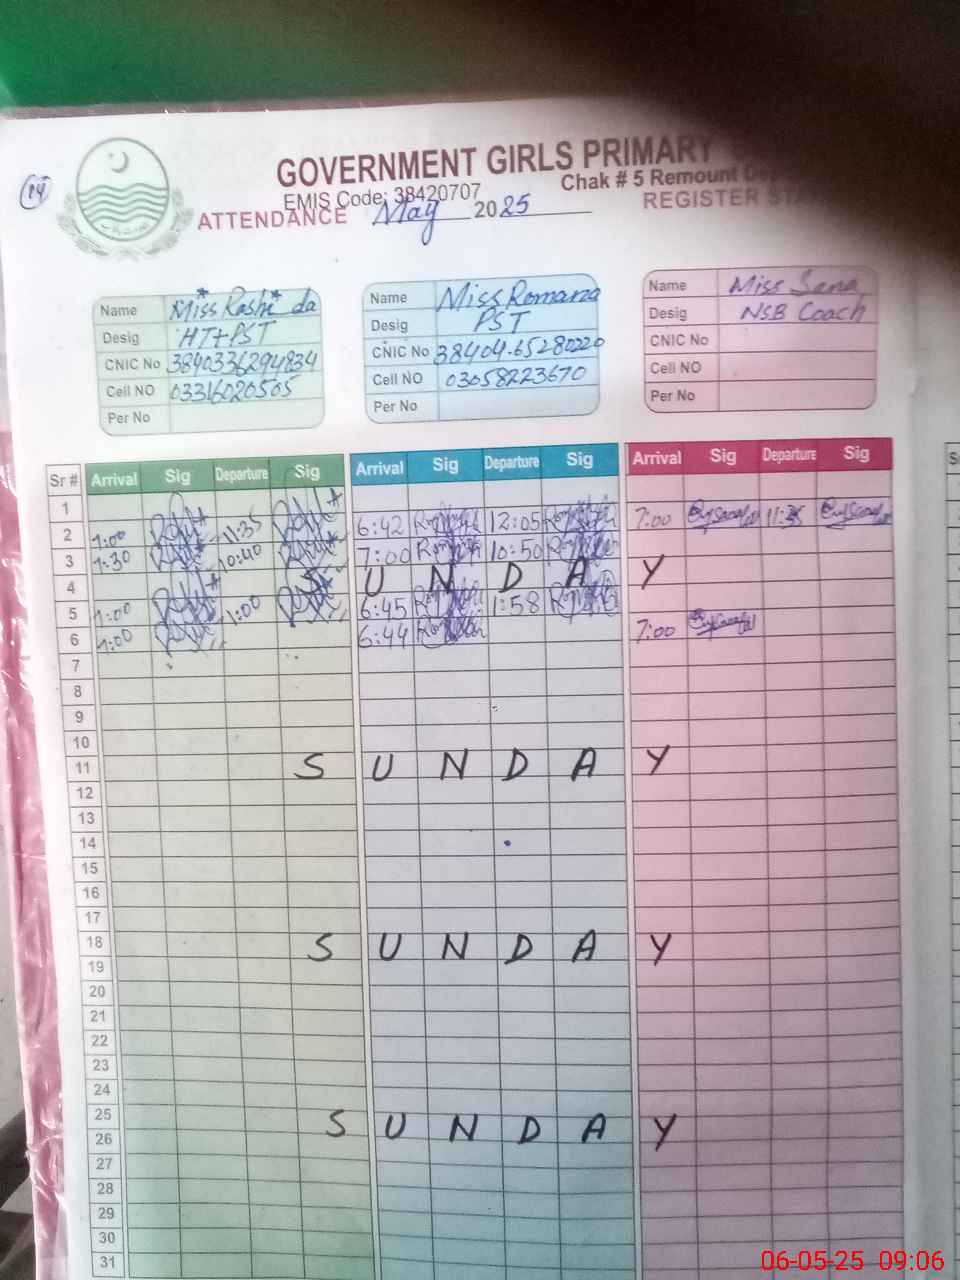 14
GOVERNMENT GIRLS PRIMARY
EMIS Code: 38420707 Chak # 5 Remount
ATTENDANCE May 2025 REGISTER
Name Miss Rashida Name Miss Romana Name Miss Sana
Desig HT+PST Desig PST Desig NSB Coach
CNIC No 3840336294834 CNIC No 38404-65280220 CNIC No
Cell NO 03316020505 Cell NO 03058223670 Cell No
Per No Per No Per No
Sr # Arrival Sig Departure Sig Arrival Sig Departure Sig Arrival Sig Departure Sig
1
2 7:00 11:35 6:42 12:05 7:00 11:35
3 7:30 10:40 7:00 10:50
4 S U N D A Y
5 7:00 1:00 6:45 1:58
6 7:00 6:44 7:00
7
8
9
10
11 S U N D A Y
12
13
14
15
16
17
18 S U N D A Y
19
20
21
22
23
24
25 S U N D A Y
26
27
28
29
30
31
06-05-25 09:06